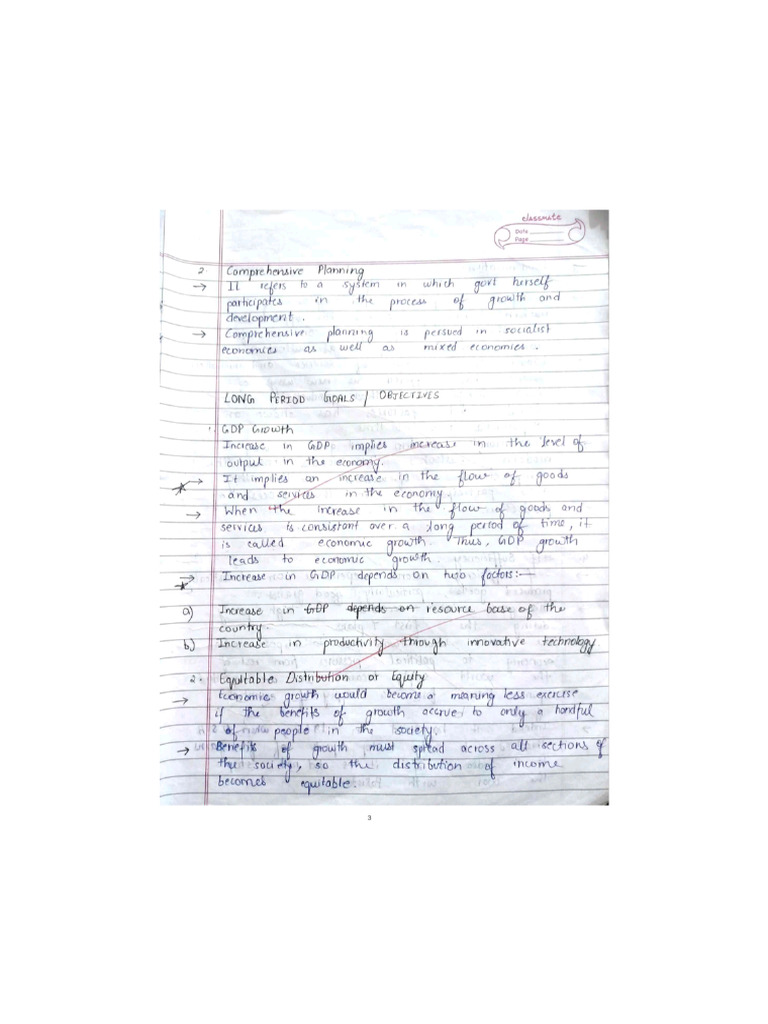 classmate
Date
Page
2. Comprehensive Planning
→ It refers to a system in which govt herself
participates in the process of growth and
development.
→ Comprehensive planning is persued in socialist
economies as well as mixed economies.
LONG PERIOD GOALS / OBJECTIVES
1. GDP Growth
Increase in GDP implies increase in the level of
output in the economy.
→ It implies an increase in the flow of goods
and services in the economy.
→ When the increase in the flow of goods and
services is consistant over a long period of time, it
is called economic growth. Thus, GDP growth
leads to economic growth.
→ Increase in GDP depends on two factors:-
a) Increase in GDP depends on resource base of the
country.
b) Increase in productivity through innovative technology
2. Equitable Distribution or Equity
→ Economic growth would become a meaning less exercise
if the benefits of growth accrue to only a handful
of people in the society.
→ Benefits of growth must spread across all sections of
the society, so the distribution of income
becomes equitable.
3